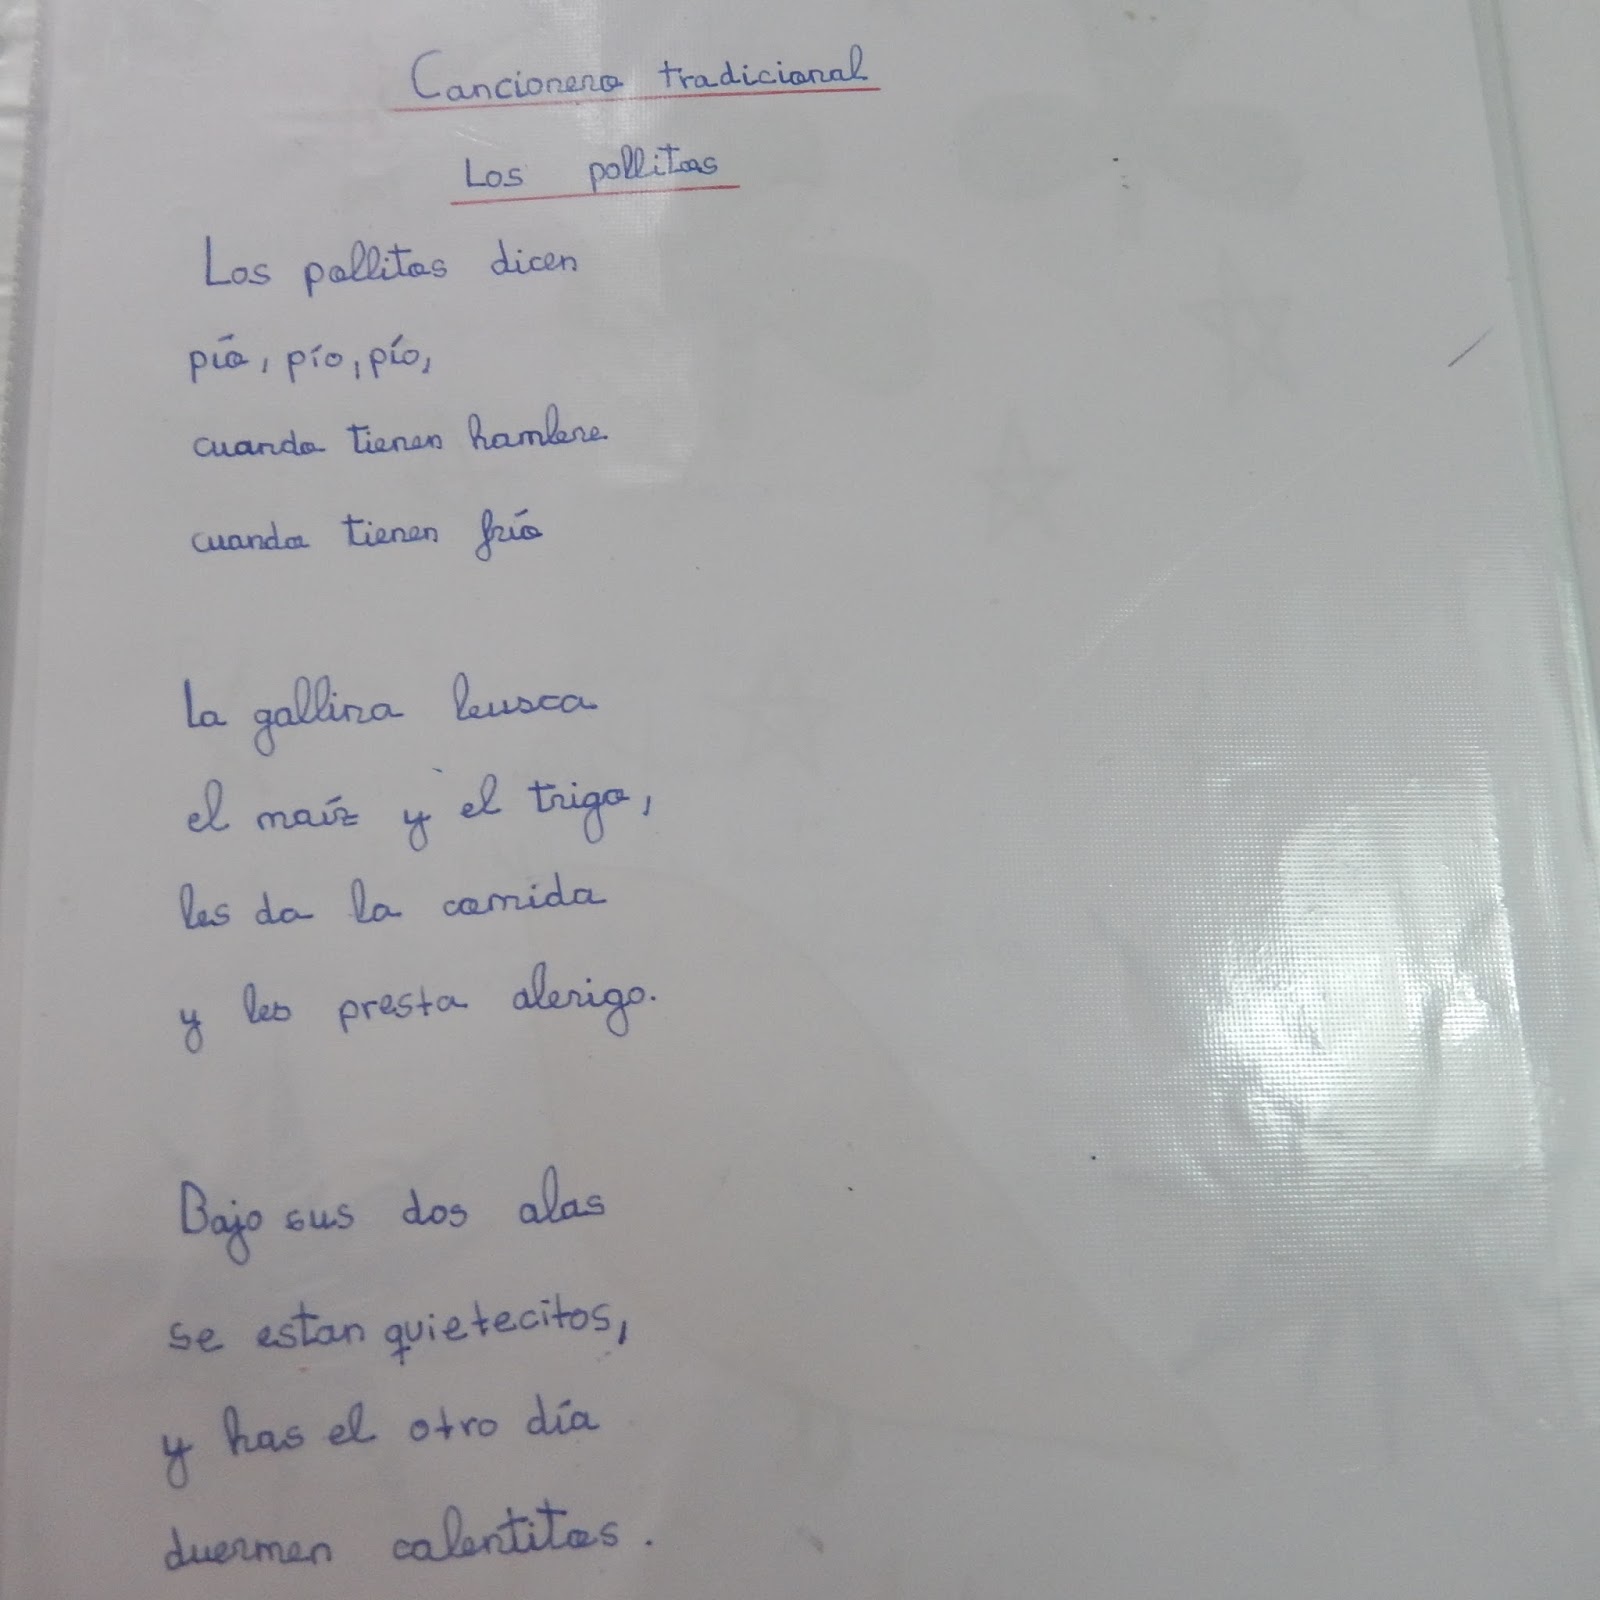 Cancionero tradicional
Los pollitos
Los pollitos dicen
pío, pío, pío,
cuando tienen hambre
cuando tienen frío
La gallina busca
el maíz y el trigo,
les da la comida
y les presta abrigo.
Bajo sus dos alas
se estan quietecitos,
y has el otro día
duermen calentitos.